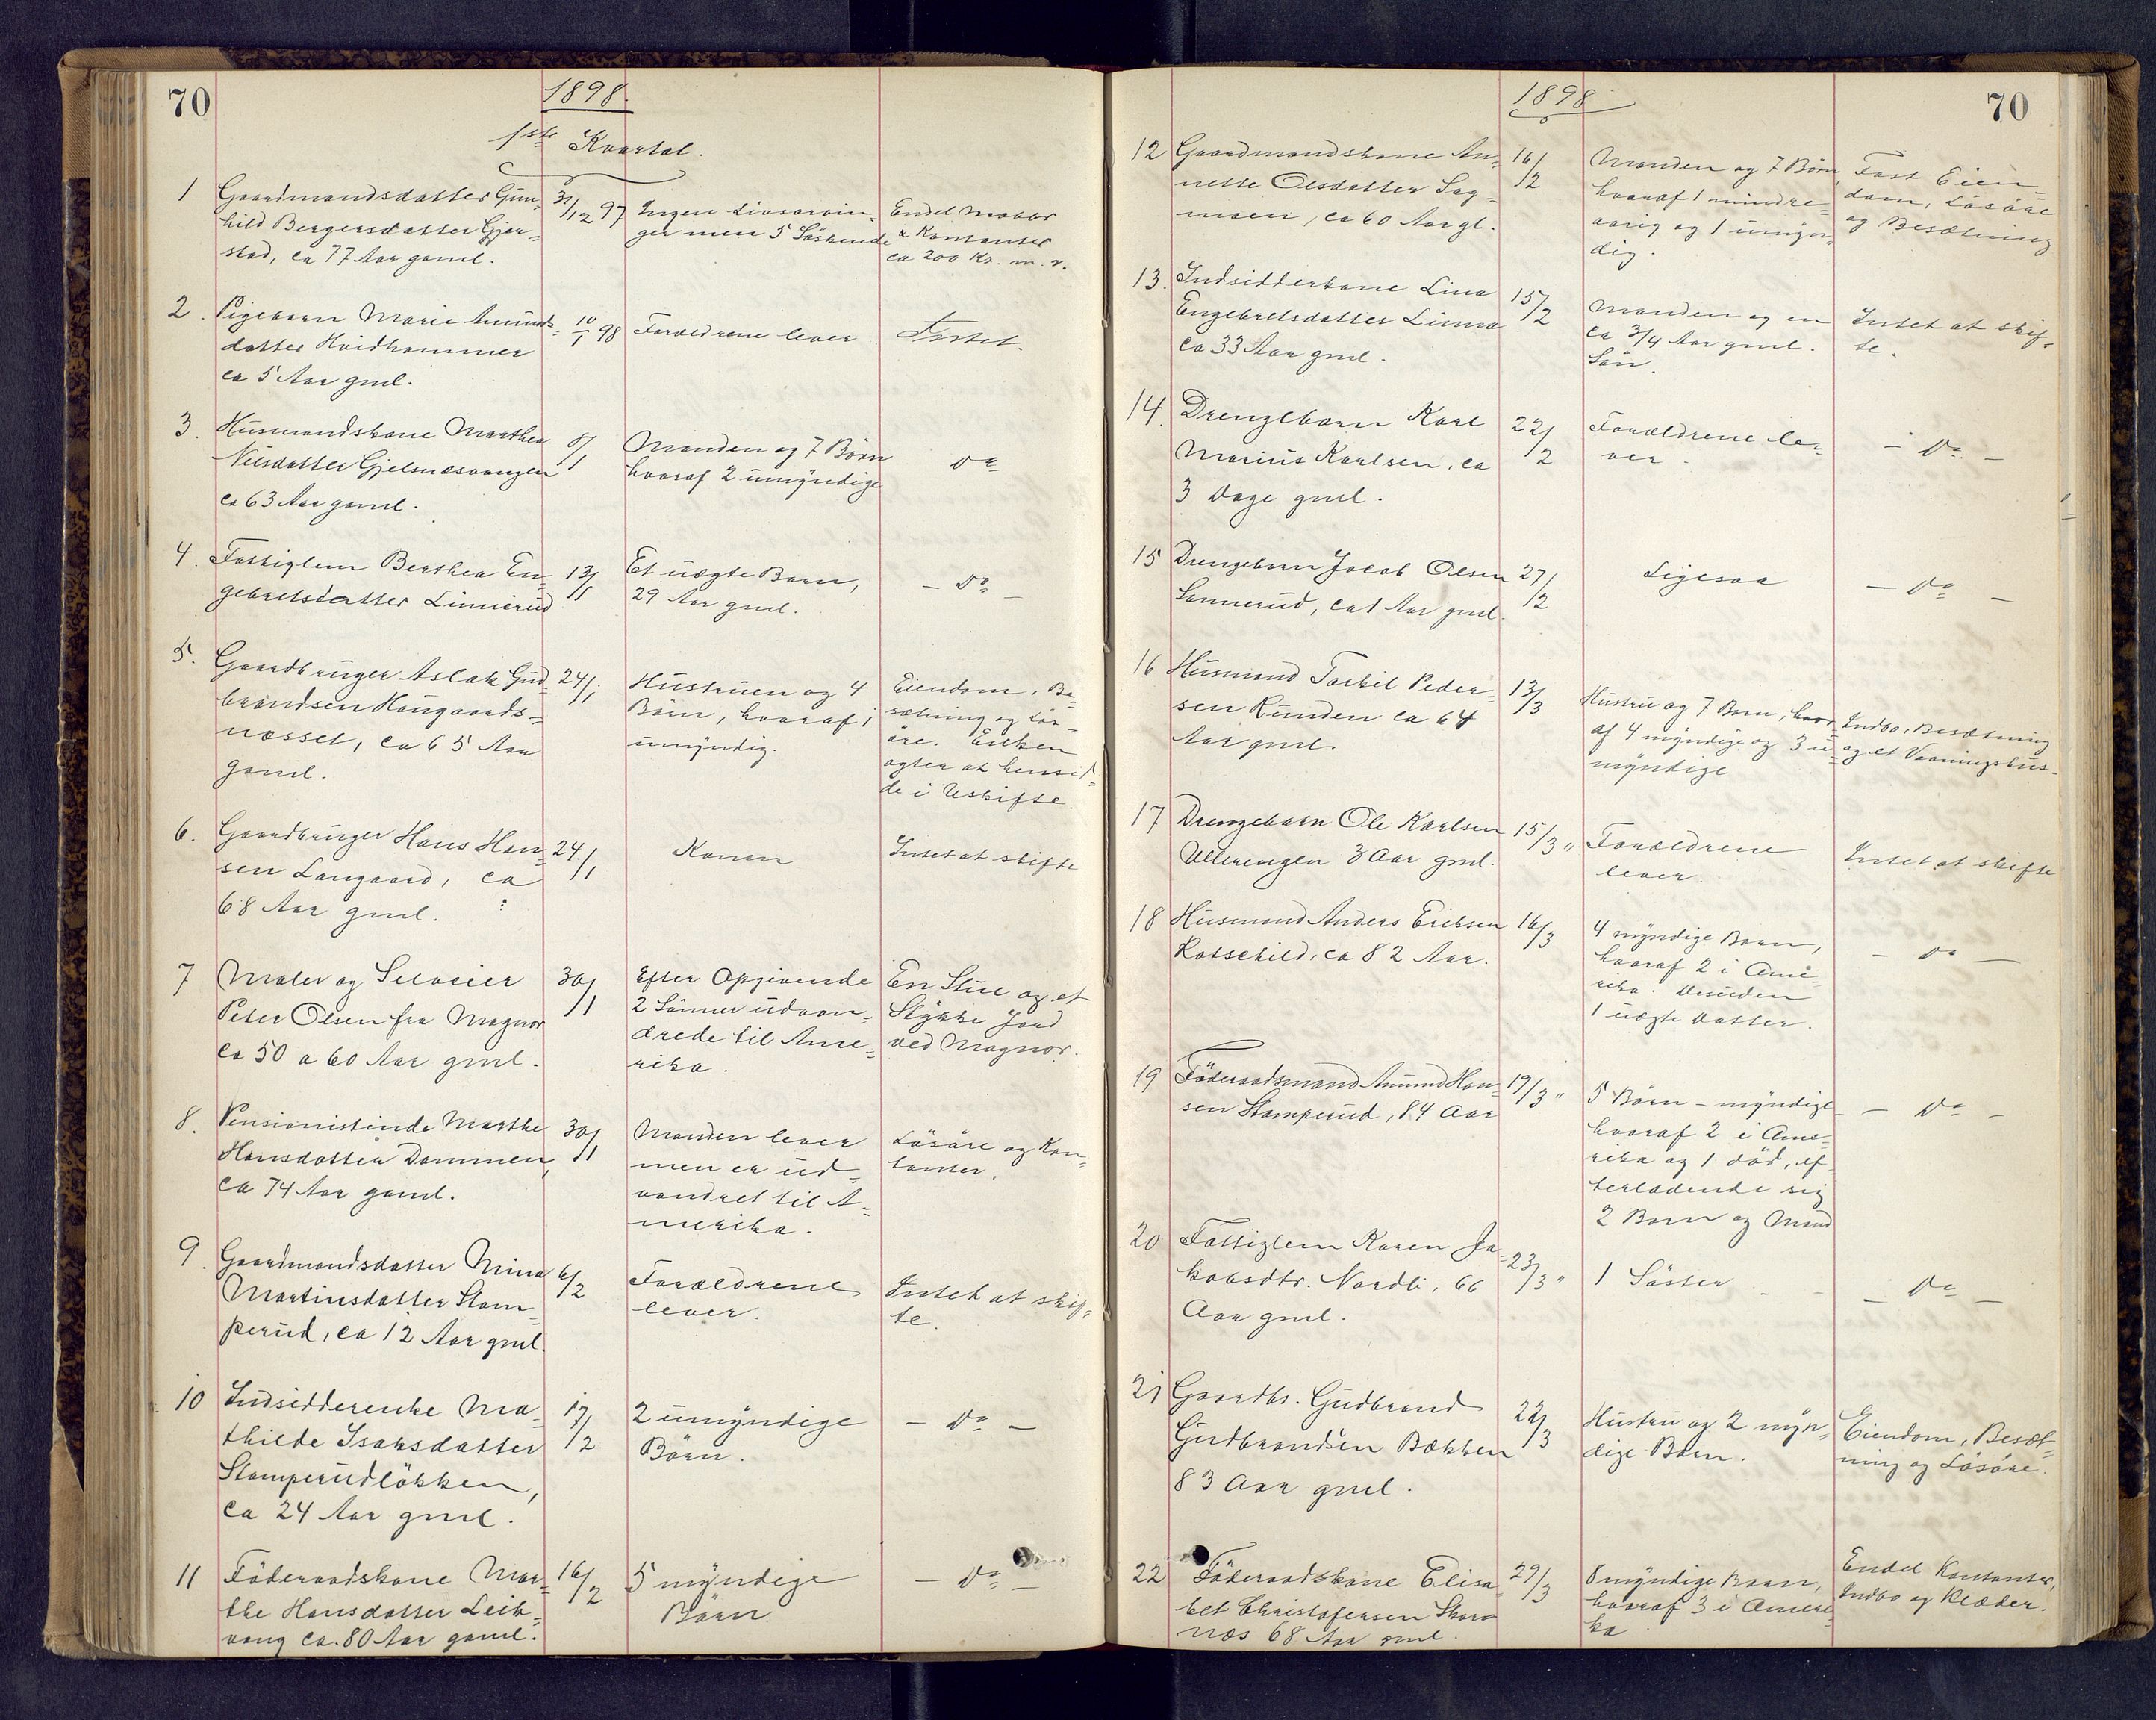 70
1898.
1ste Kvartal.
1 Gaardmandsdatter Gun-
hild Bergersdatter Gjer-
stad, ca 77 Aar gaml.
31/12 97
Ingen Livsarvin-
ger men 5 Söskende
Endel Møbler
& Kontanter
ca 200 Kr. m. v.
2. Pigebarn Marie Amunds-
datter Hvidhammer
ca 5 Aar gml.
10/1 98
Forældrene lever
Intet.
3. Husmandskone Marthea
Nilsdatter Gjelnesvangen
ca 63 Aar gaml.
8/1
Manden og 7 Börn
hvoraf 2 umyndige
do
4. Fattiglem Berthea En-
gebretsdatter Linnerud
13/1
Et uægte Barn,
29 Aar gml.
- do -
5. Gaardbruger Aslak Gud-
brandsen Haugaards-
næsset, ca 65 Aar
gaml.
24/1
Hustruen og 4
Börn, hvoraf 1
umyndig.
Eiendom, Be-
sætning og Lös-
öre. Enken
agter at hensid-
de i Uskifte.
6. Gaardbruger Hans Han-
sen Langaard, ca
68 Aar gml.
24/1
Konen
Intet at skifte
7 Maler og Selveier
Peter Olsen fra Magnor
ca 50 a 60 Aar gml.
30/1
Efter Opgivende
2 Sönner udvan-
drede til Ame-
rika.
En Stue og et
Stykke Jord
ved Magnor.
8. Pensionistinde Marthe
Hansdatter Dammen,
ca 74 Aar gaml.
30/1
Manden lever
men er ud-
vandret til A-
merika.
Lösöre og Kon-
tanter.
9. Gaardmandsdatter Mina
Martinsdatter Stom-
perud, ca 12 Aar gml.
6/2
Forældrene
lever.
Intet at skif-
te.
10 Indsidderenke Ma-
thilde Isaksdatter
Stomperudlökken,
ca 24 Aar gml.
17/2
2 umyndige
Börn.
- do -
11 Föderaadskone Mar-
the Hansdatter Leik-
vang ca. 80 Aar gaml.
16/2
5 myndige
Börn.
- do -
1898
70
12 Gaardmandskone An-
nette Olsdatter Sag-
moen, ca 60 Aar gl.
16/2
Manden og 7 Börn,
hvoraf 1 mindre-
aarig og 1 umyn-
dig.
Fast Eien-
dom, Lösöre
og Besætning
13. Indsidderkone Lina
Engebretsdatter Linna
ca 33 Aar gml.
15/2
Manden og en
ca 3/4 Aar gml.
Sön.
Intet at skif-
te.
14. Drengebarn Karl
Marius Karlsen, ca
3 Dage gml.
22/2
Forældrene le-
ver.
- do -
15 Drengebarn Jacob Olsen
Sannerud, ca 1 Aar gml.
27/2
Ligesaa
- do -
16 Husmand Torkil Peder-
sen Runden ca 64
Aar gml.
13/3
Hustru og 7 Barn, hvor-
af 4 myndige og 3 u-
myndige
Indbo, Besætning
og et Vaaningshus.
17 Drengebarn Ole Karlsen
Ullerengen 3 Aar gml.
15/3 "
Forældrene
lever.
Intet at skifte
18 Husmand Anders Eriksen
Rotschild, ca 82 Aar.
16/3
4 myndige Barn,
hvoraf 2 i Ame-
rika. Desuden
1 uægte Datter.
- do -
19 Föderaadsmand Amund Han-
sen Stomperud, 84 Aar
19/3 "
5 Börn - myndige
hvoraf 2 i Ame-
rika og 1 död, ef-
terladende sig
2 Barn og Mand
- do -
20 Fattiglem Karen Ja-
kobsdtr. Nordli, 66
Aar gml.
23/3 "
1 Söster
- do -
21 Gaardbr. Gudbrand
Gudbrandsen Bækken
83 Aar gml.
22/3
Hustru og 2 myn-
dige Barn.
Eiendom, Besæt-
ning og Lösöre.
22 Föderaadskone Elisa-
bet Christofersen Skara-
næs 68 Aar gml.
29/3
8 myndige Barn,
hvoraf 3 i Ameri-
ka
Endel Kontanter,
Indbo og Klæder.